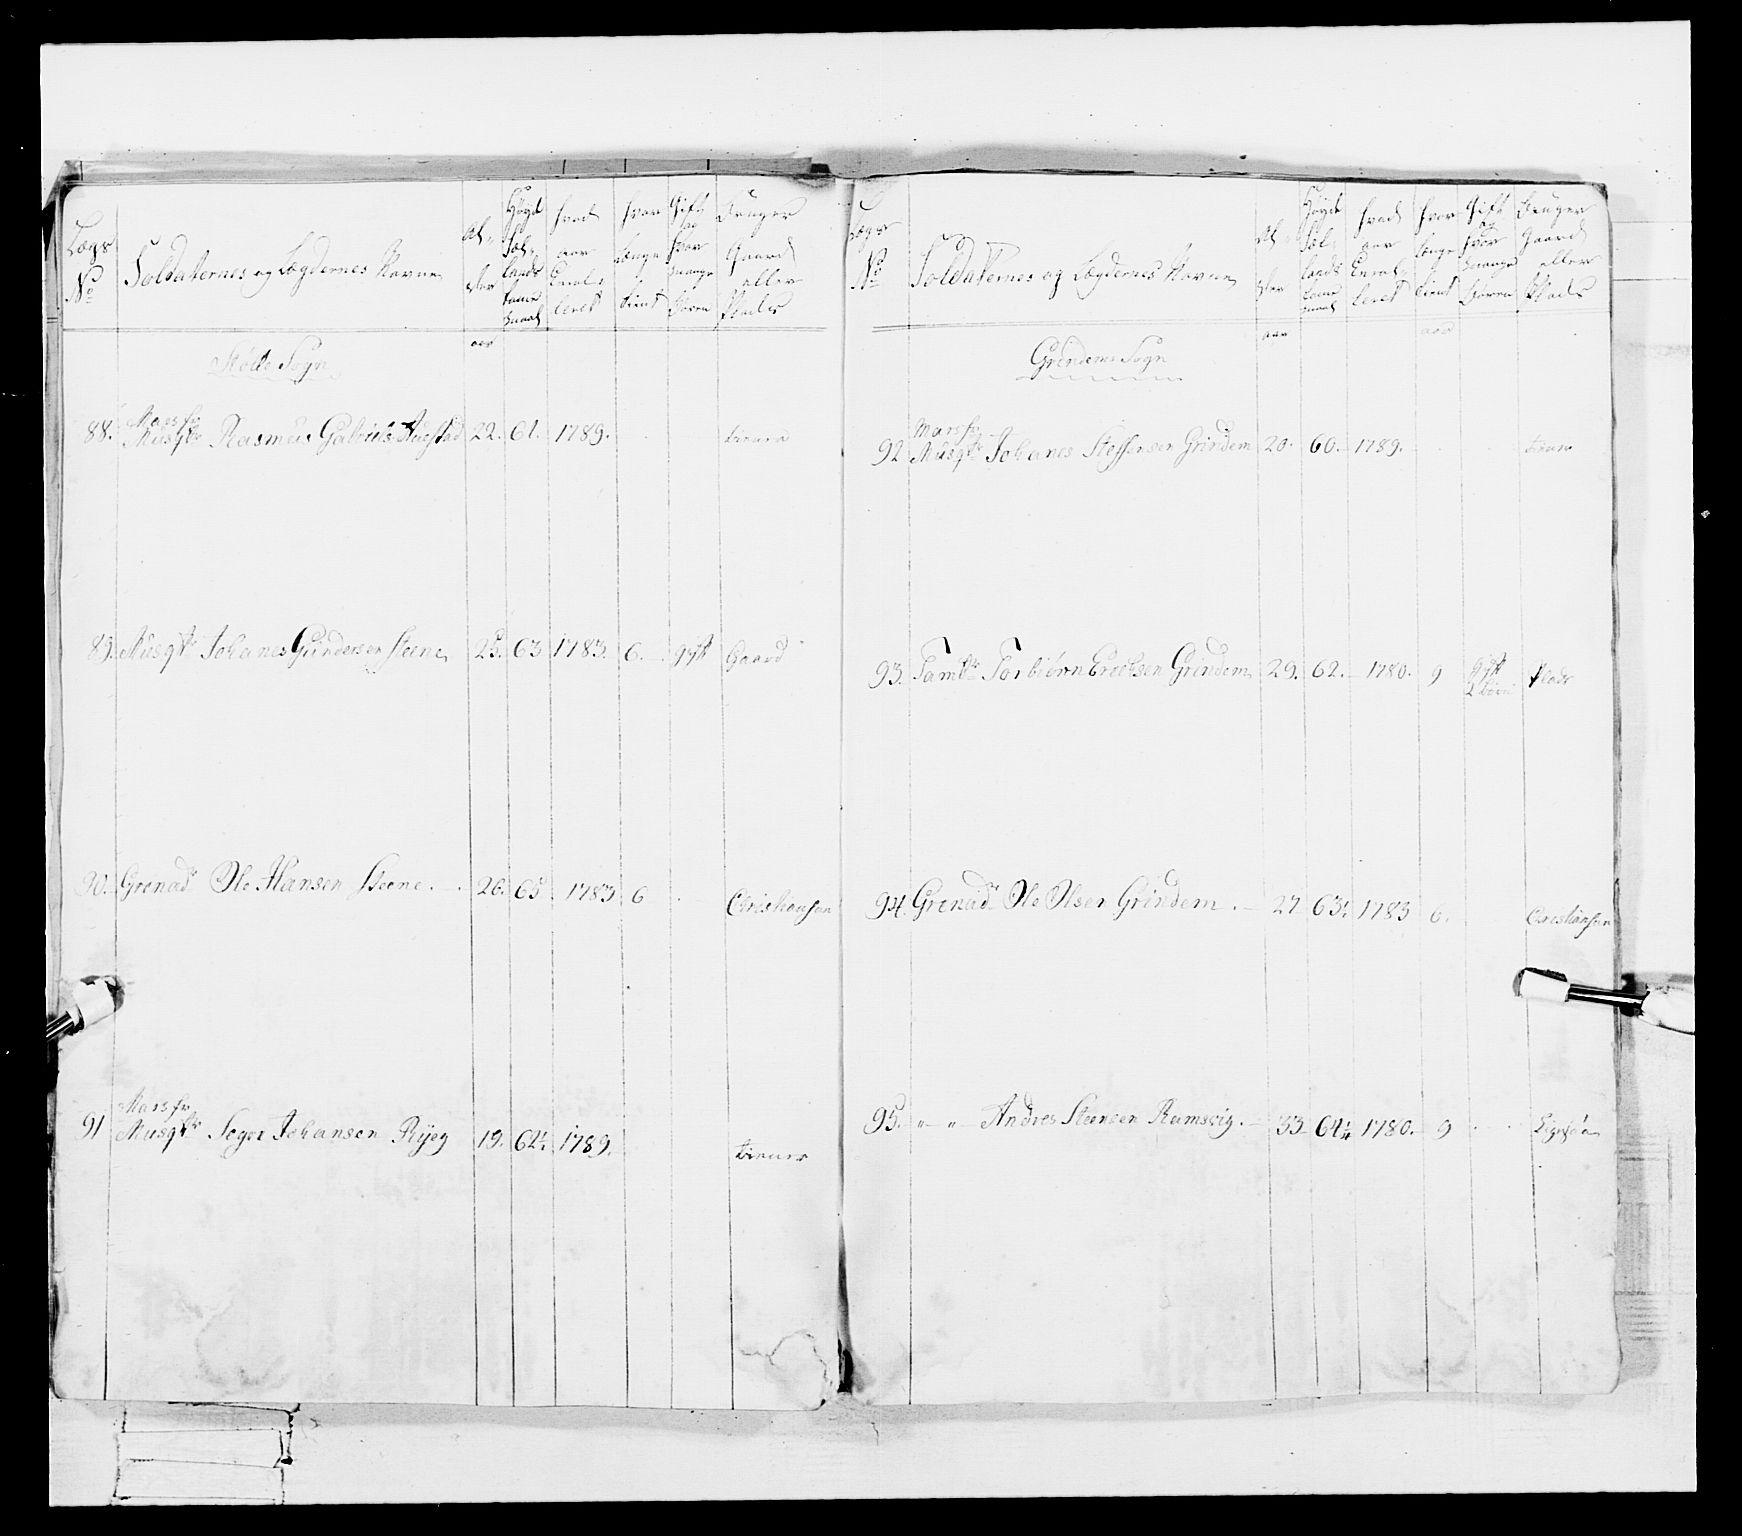 Lægs No
Soldaternes og Lægdernes Navne
Al- der
Høyde
hvad aar Enroleret
hvor længe tient
Gift og hvor mange Børn
bruger Gaard eller Plads
aar
Sogn
88. Marsfr Musqtr Rasmus Gabriels 22. 61. 1789. tiener
89. Musqtr Johanes Gundersen Steene 25. 63 1783. 6. gift Gaard
90. Grenadr Ole Hansen Steene. 26. 65 1783 6 Christiansan
91 Marsfr Musqtr Johansen Rÿeg 19. 62½ 1789. tiener
Lægs No
Soldaternes og Lægdernes Navne
Al- der
Høyde
hvad aar Enroleret
hvor længe tient
Gift og hvor mange Børn
bruger Gaard eller Plads
aar
aar
Grindems Sogn
92 Marsfr Musqtr Johanes Steffensen Grindem 20. 60. 1789. tiener
93. Tambr Torbiörn Grindem 29. 62. 1780. 9 gift 2 börn Plads
94. Grenadr Ole Olsen Grindem. 27 63. 1783 6. Christiansan
95. " " Andres Steensen Ramsvig. 33 64¼ 1780. 9